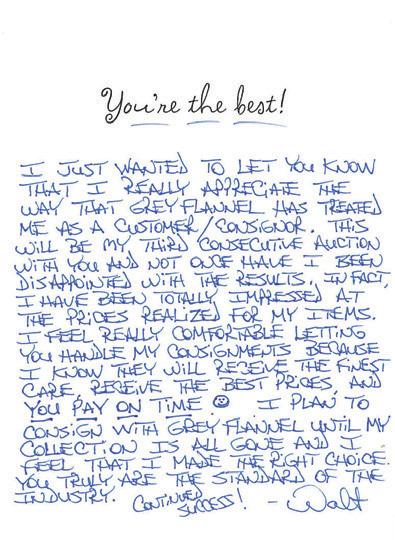 You're the best!
I JUST WANTED TO LET YOU KNOW
THAT I REALLY APPRECIATE THE
WAY THAT GREY FLANNEL HAS TREATED
ME AS A CUSTOMER/CONSIGNOR. THIS
WILL BE MY THIRD CONSECUTIVE AUCTION
WITH YOU AND NOT ONCE HAVE I BEEN
DISAPPOINTED WITH THE RESULTS. IN FACT,
I HAVE BEEN TOTALLY IMPRESSED AT
THE PRICES REALIZED FOR MY ITEMS.
I FEEL REALLY COMFORTABLE LETTING
YOU HANDLE MY CONSIGNMENTS BECAUSE
I KNOW THEY WILL RECEIVE THE FINEST
CARE, RECEIVE THE BEST PRICES, AND
YOU PAY ON TIME. I PLAN TO
CONSIGN WITH GREY FLANNEL UNTIL MY
COLLECTION IS ALL GONE AND I
FEEL THAT I MADE THE RIGHT CHOICE.
YOU TRULY ARE THE STANDARD OF THE
INDUSTRY. CONTINUED
SUCCESS! - Walt